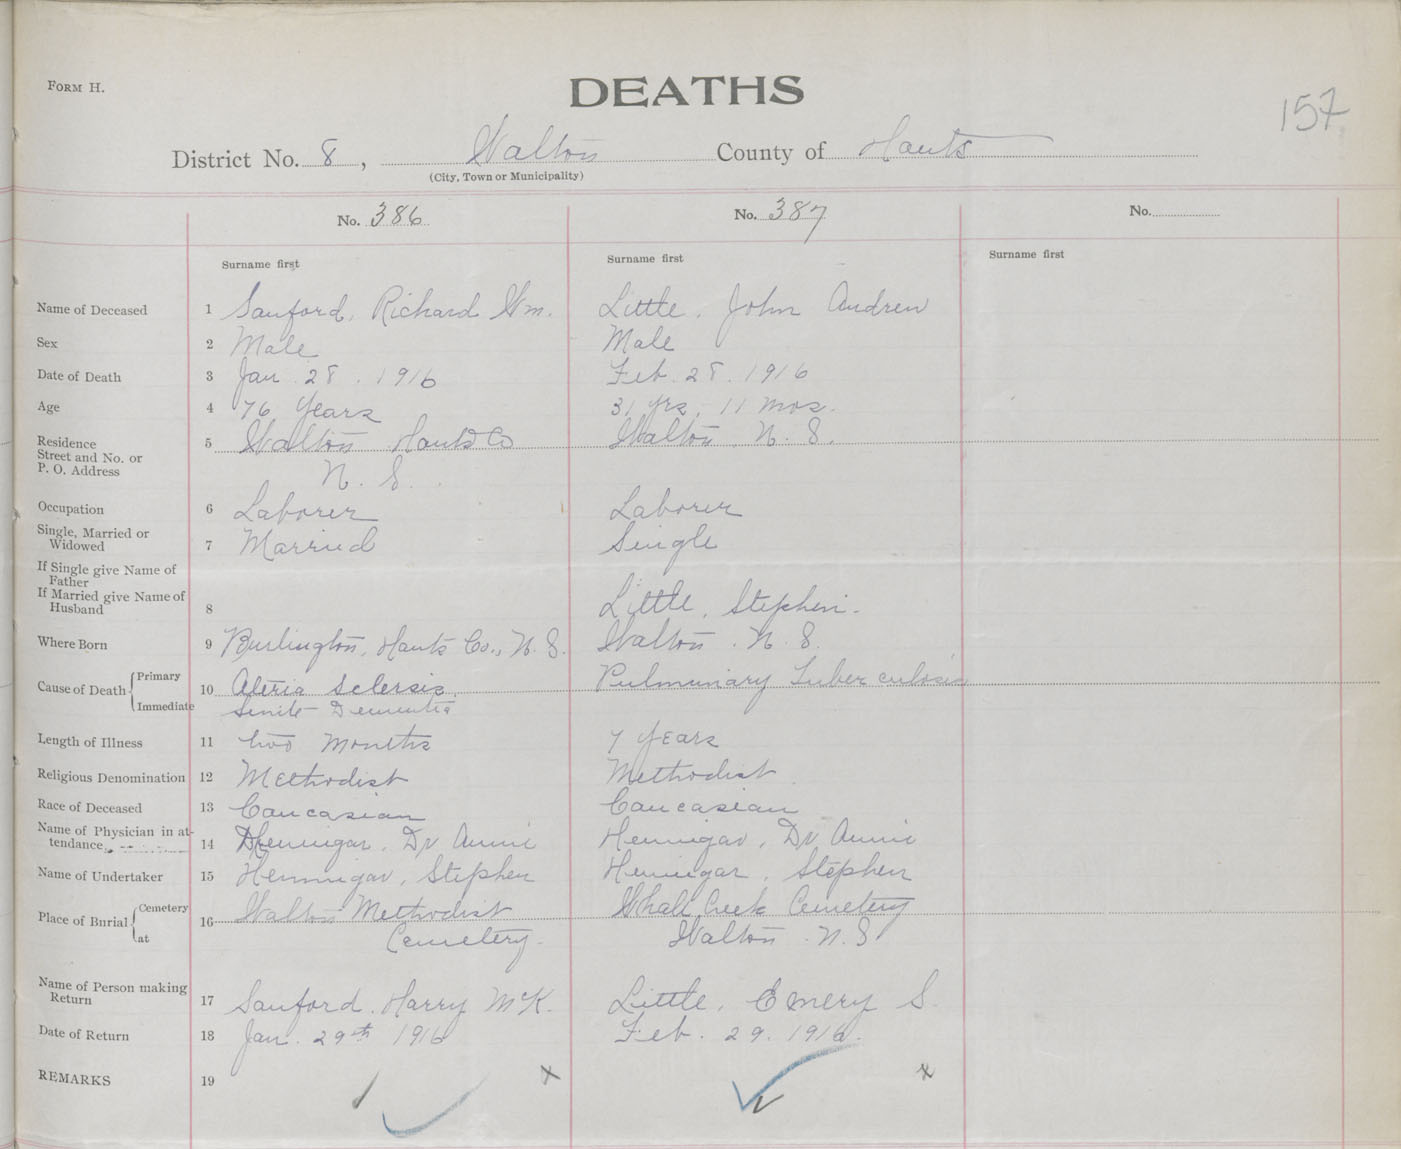 FORM H.
DEATHS
157
District No. 8, Walton County of Hants
(City, Town or Municipality)
No. 386 No. 387 No.
Surname first Surname first Surname first
Name of Deceased 1 Sanford, Richard Wm. Little, John Andrew
Sex 2 Male Male
Date of Death 3 Jan. 28. 1916 Feb. 28. 1916
Age 4 76 Years 31 yrs, 11 mos.
Residence 5 Walton Hants Co Walton N. S.
Street and No. or
P. O. Address N. S.
Occupation 6 Laborer Laborer
Single, Married or
Widowed 7 Married Single
If Single give Name of
Father
If Married give Name of
Husband 8 Little, Stephen.
Where Born 9 Burlington, Hants Co., N. S. Walton. N. S.
Cause of Death Primary 10 Ateria Sclersis. Pulmunary Tuberculosis
Immediate Senile Dementia
Length of Illness 11 two months 7 years
Religious Denomination 12 Methodist Methodist
Race of Deceased 13 Caucasian Caucasian
Name of Physician in at-
tendance 14 Hennigar, Dr Annie Hennigar, Dr Annie
Name of Undertaker 15 Hennigar, Stephen Hennigar, Stephen
Place of Burial Cemetery 16 Walton Methodist Whale Creek Cemetery
at Cemetery. Walton. N. S
Name of Person making
Return 17 Sanford, Harry McK. Little, Emery S.
Date of Return 18 Jan. 29th 1916 Feb. 29. 1916.
REMARKS 19 x x